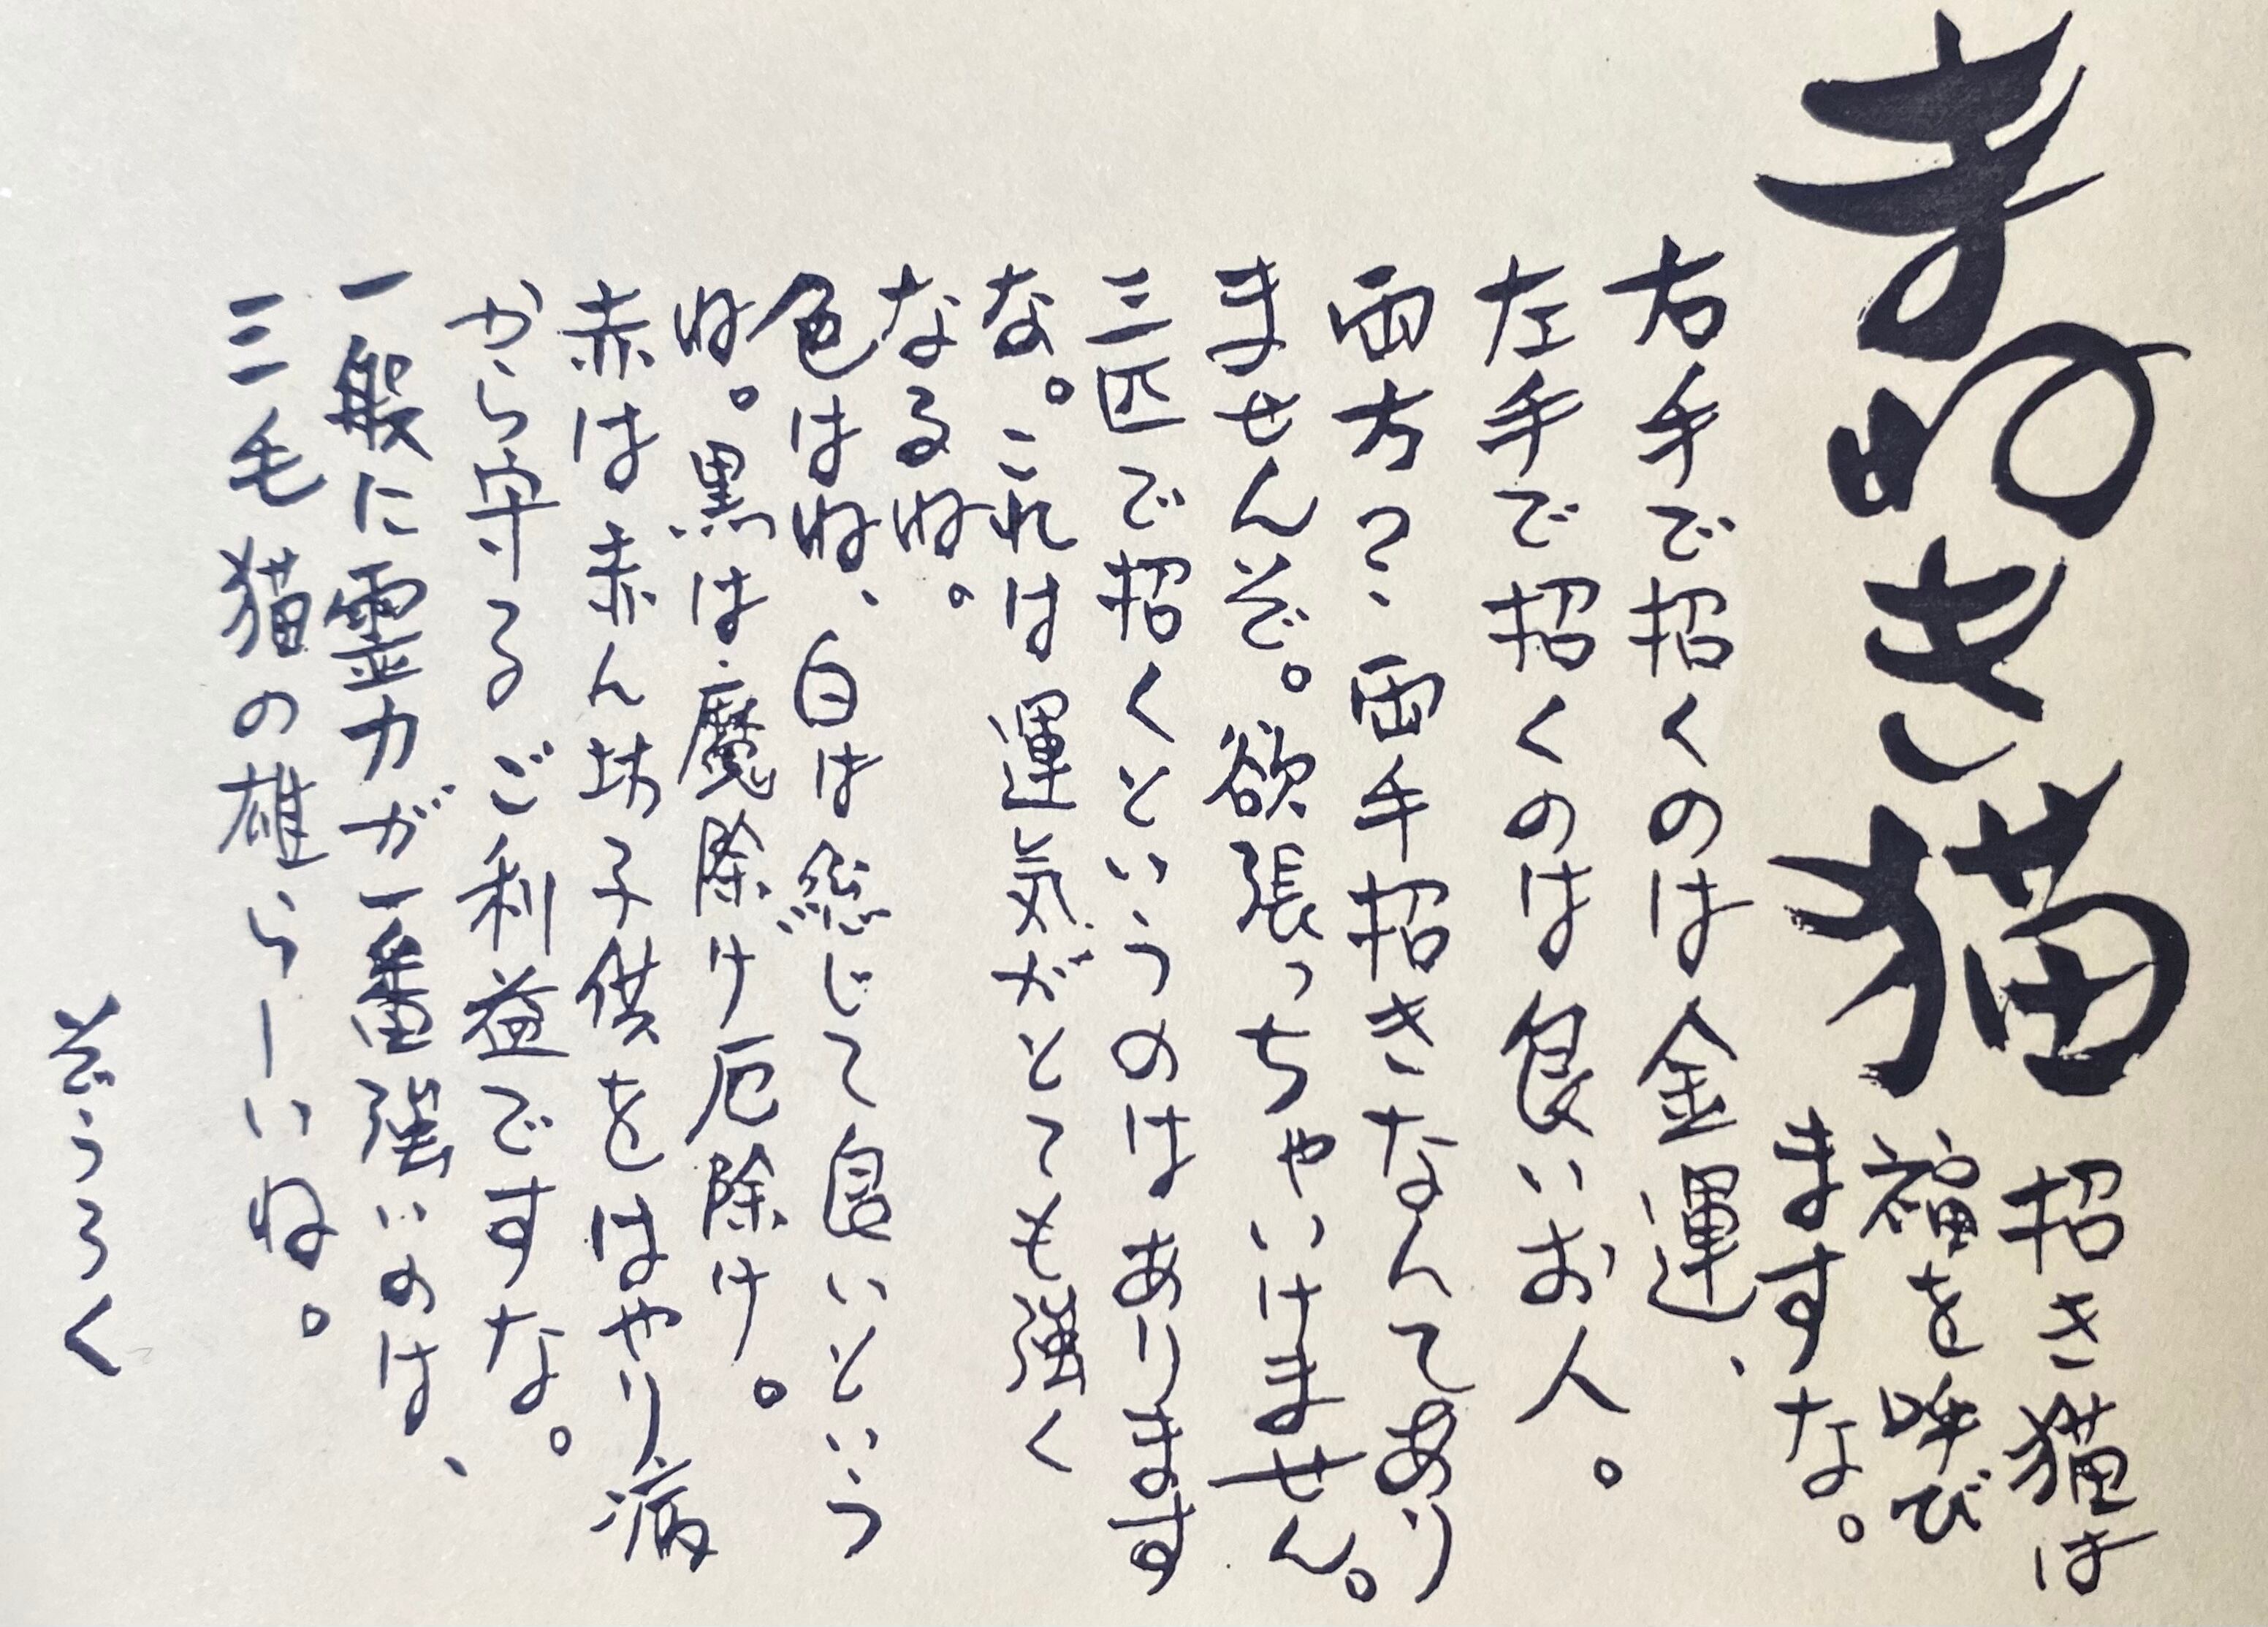 まねき猫
招き猫は
福を呼び
ますな。
右手で招くのは金運、
左手で招くのは良いお人。
両方？、両手招きなんてあり
ませんぞ。欲張っちゃいけません。
三匹で招くというのはあります
な。これは運気がとても強く
なるね。
色はね、白は総じて良いという
ね。黒は魔除け厄除け。
赤は赤ん坊子供をはやり病
から守るご利益ですな。
一般に霊力が一番強いのは、
三毛猫の雄らしいね。